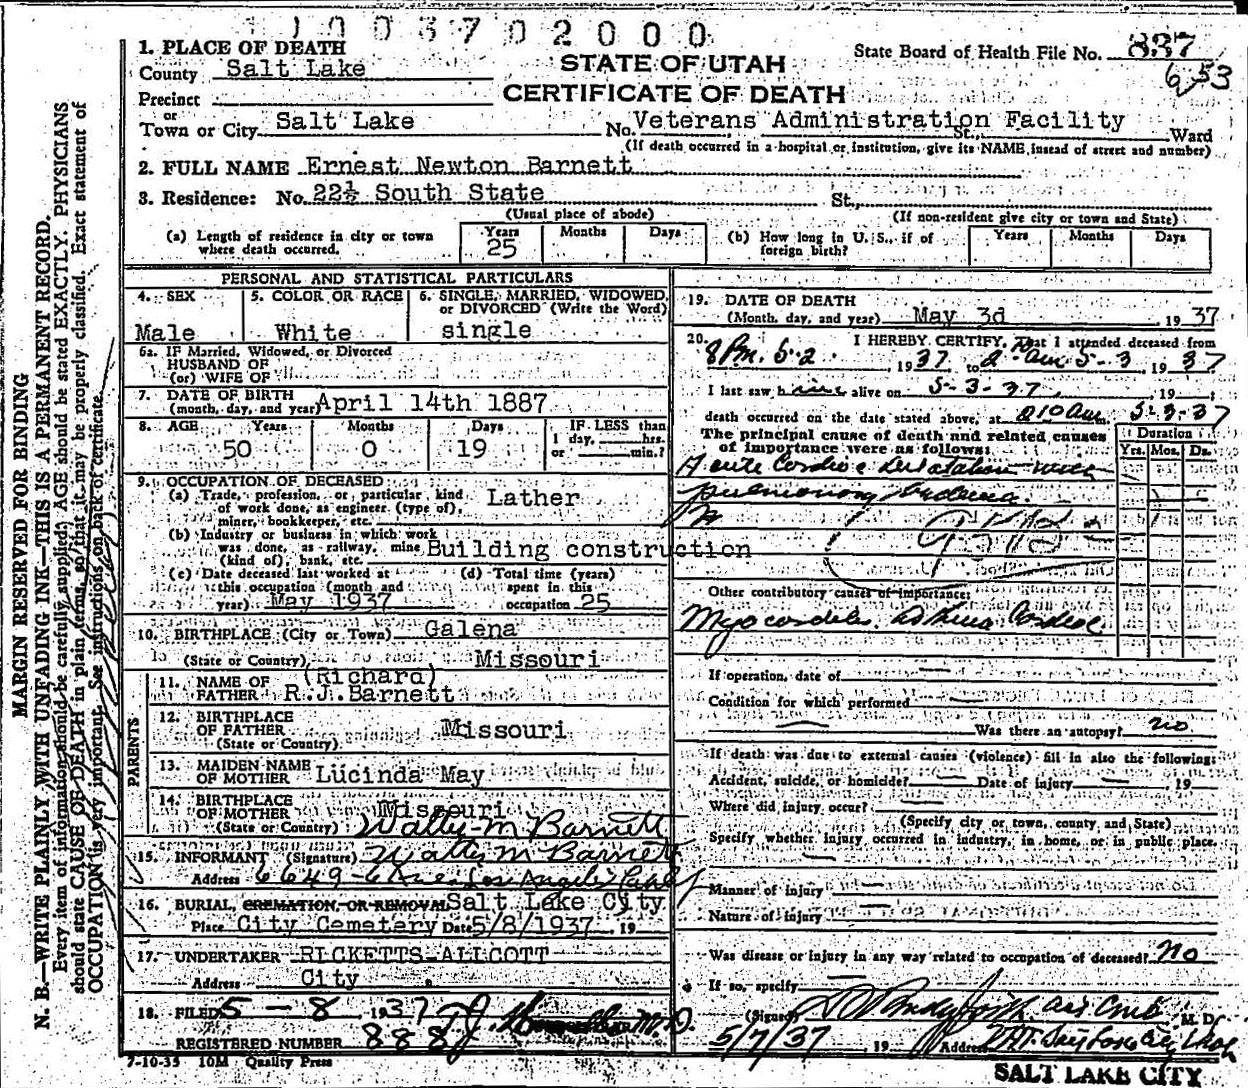 1003702000
STATE OF UTAH
CERTIFICATE OF DEATH
State Board of Health File No. 837
653
1. PLACE OF DEATH
County Salt Lake
Precinct
or
Town or City Salt Lake No. Veterans Administration Facility St., Ward
(If death occurred in a hospital or institution, give its NAME instead of street and number)
2. FULL NAME Ernest Newton Barnett
3. Residence: No. 22½ South State St.,
(Usual place of abode) (If non-resident give city or town and State)
(a) Length of residence in city or town where death occurred. Years 25 Months Days
(b) How long in U. S., if of foreign birth? Years Months Days
PERSONAL AND STATISTICAL PARTICULARS
4. SEX Male
5. COLOR OR RACE White
6. SINGLE, MARRIED, WIDOWED, or DIVORCED (Write the Word) single
6a. IF Married, Widowed, or Divorced
HUSBAND OF
(or) WIFE OF
7. DATE OF BIRTH
(month, day, and year) April 14th 1887
8. AGE Years 50 Months 0 Days 19 IF LESS than
1 day, hrs.
or min.?
9. OCCUPATION OF DECEASED
(a) Trade, profession, or particular kind of work done, as engineer (type of), miner, bookkeeper, etc. Lather
(b) Industry or business in which work was done, as railway, mine (kind of), bank, etc. Building construction
(c) Date deceased last worked at this occupation (month and year) May 1937
(d) Total time (years) spent in this occupation 25
10. BIRTHPLACE (City or Town) Galena
(State or Country) Missouri
PARENTS
11. NAME OF FATHER (Richard) R.J. Barnett
12. BIRTHPLACE OF FATHER (State or Country) Missouri
13. MAIDEN NAME OF MOTHER Lucinda May
14. BIRTHPLACE OF MOTHER (State or Country) Missouri
M Barnett
15. INFORMANT (Signature) M Barnett
Address 6649 6 Ave Los Angeles
16. BURIAL, CREMATION, OR REMOVAL Salt Lake City
Place City Cemetery Date 5/8/1937 19
17. UNDERTAKER RICKETTS-ALLCOTT
Address City
18. FILED 5-8 1937
REGISTERED NUMBER 888
7-10-35 10M Quality Press
19. DATE OF DEATH
(Month, day, and year) May 3d 1937
20. I HEREBY CERTIFY, That I attended deceased from
8 P.m. 5-2, 1937 to 5-3 1937
I last saw him alive on 5-3-37, 19
death occurred on the date stated above, at 2 10 am. 5-3-37
The principal cause of death and related causes of importance were as follows:
Duration
Yrs. Mos. Ds.
Acute Cardiac Dilatation with
pulmonary
Other contributory causes of importance:
If operation, date of
Condition for which performed
Was there an autopsy? no
If death was due to external causes (violence) fill in also the following:
Accident, suicide, or homicide? Date of injury , 19
Where did injury occur?
(Specify city or town, county and State)
Specify whether injury occurred in industry, in home, or in public place.
Manner of injury
Nature of injury
Was disease or injury in any way related to occupation of deceased? No
If so, specify
(Signed) M. D.
5/7/37 19 Address
SALT LAKE CITY
MARGIN RESERVED FOR BINDING
N. B.—WRITE PLAINLY WITH UNFADING INK—THIS IS A PERMANENT RECORD.
Every item of information should be carefully supplied. AGE should be stated EXACTLY. PHYSICIANS
should state CAUSE OF DEATH in plain terms, so that it may be properly classified. Exact statement of
OCCUPATION is very important. See instructions on back of certificate.